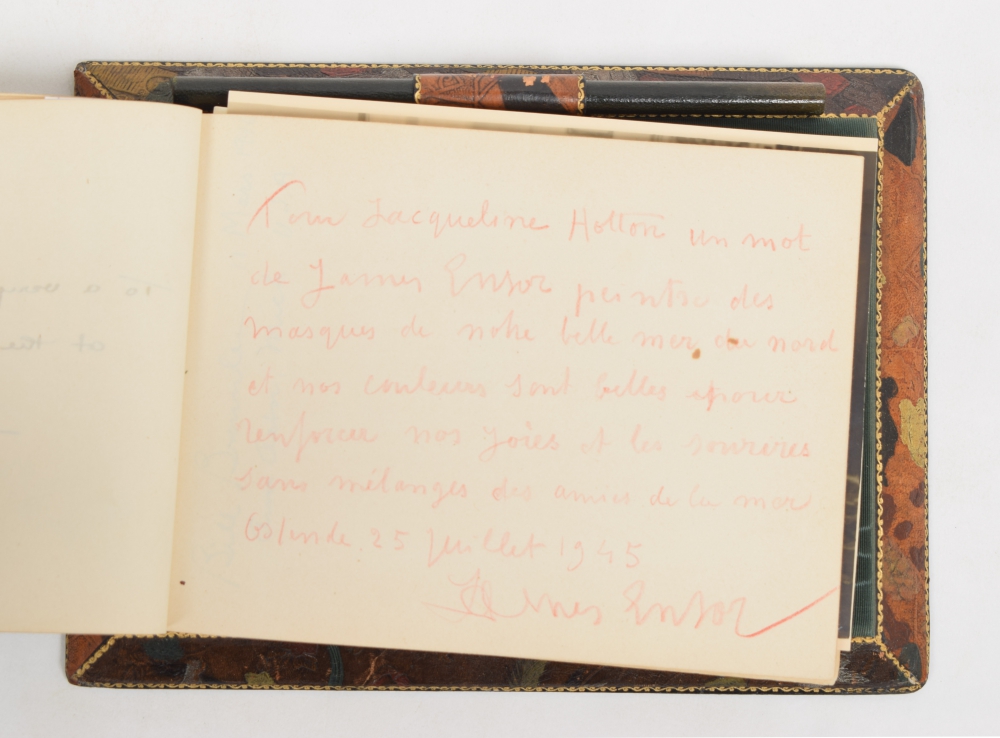 Pour Jacqueline Hotton un mot
de James Ensor peintre des
masques de notre belle mer du nord
et nos couleurs sont belles pour
renforcer nos joies et les sourires
sans mélanges des amies de la mer
Ostende 25 juillet 1945
James Ensor